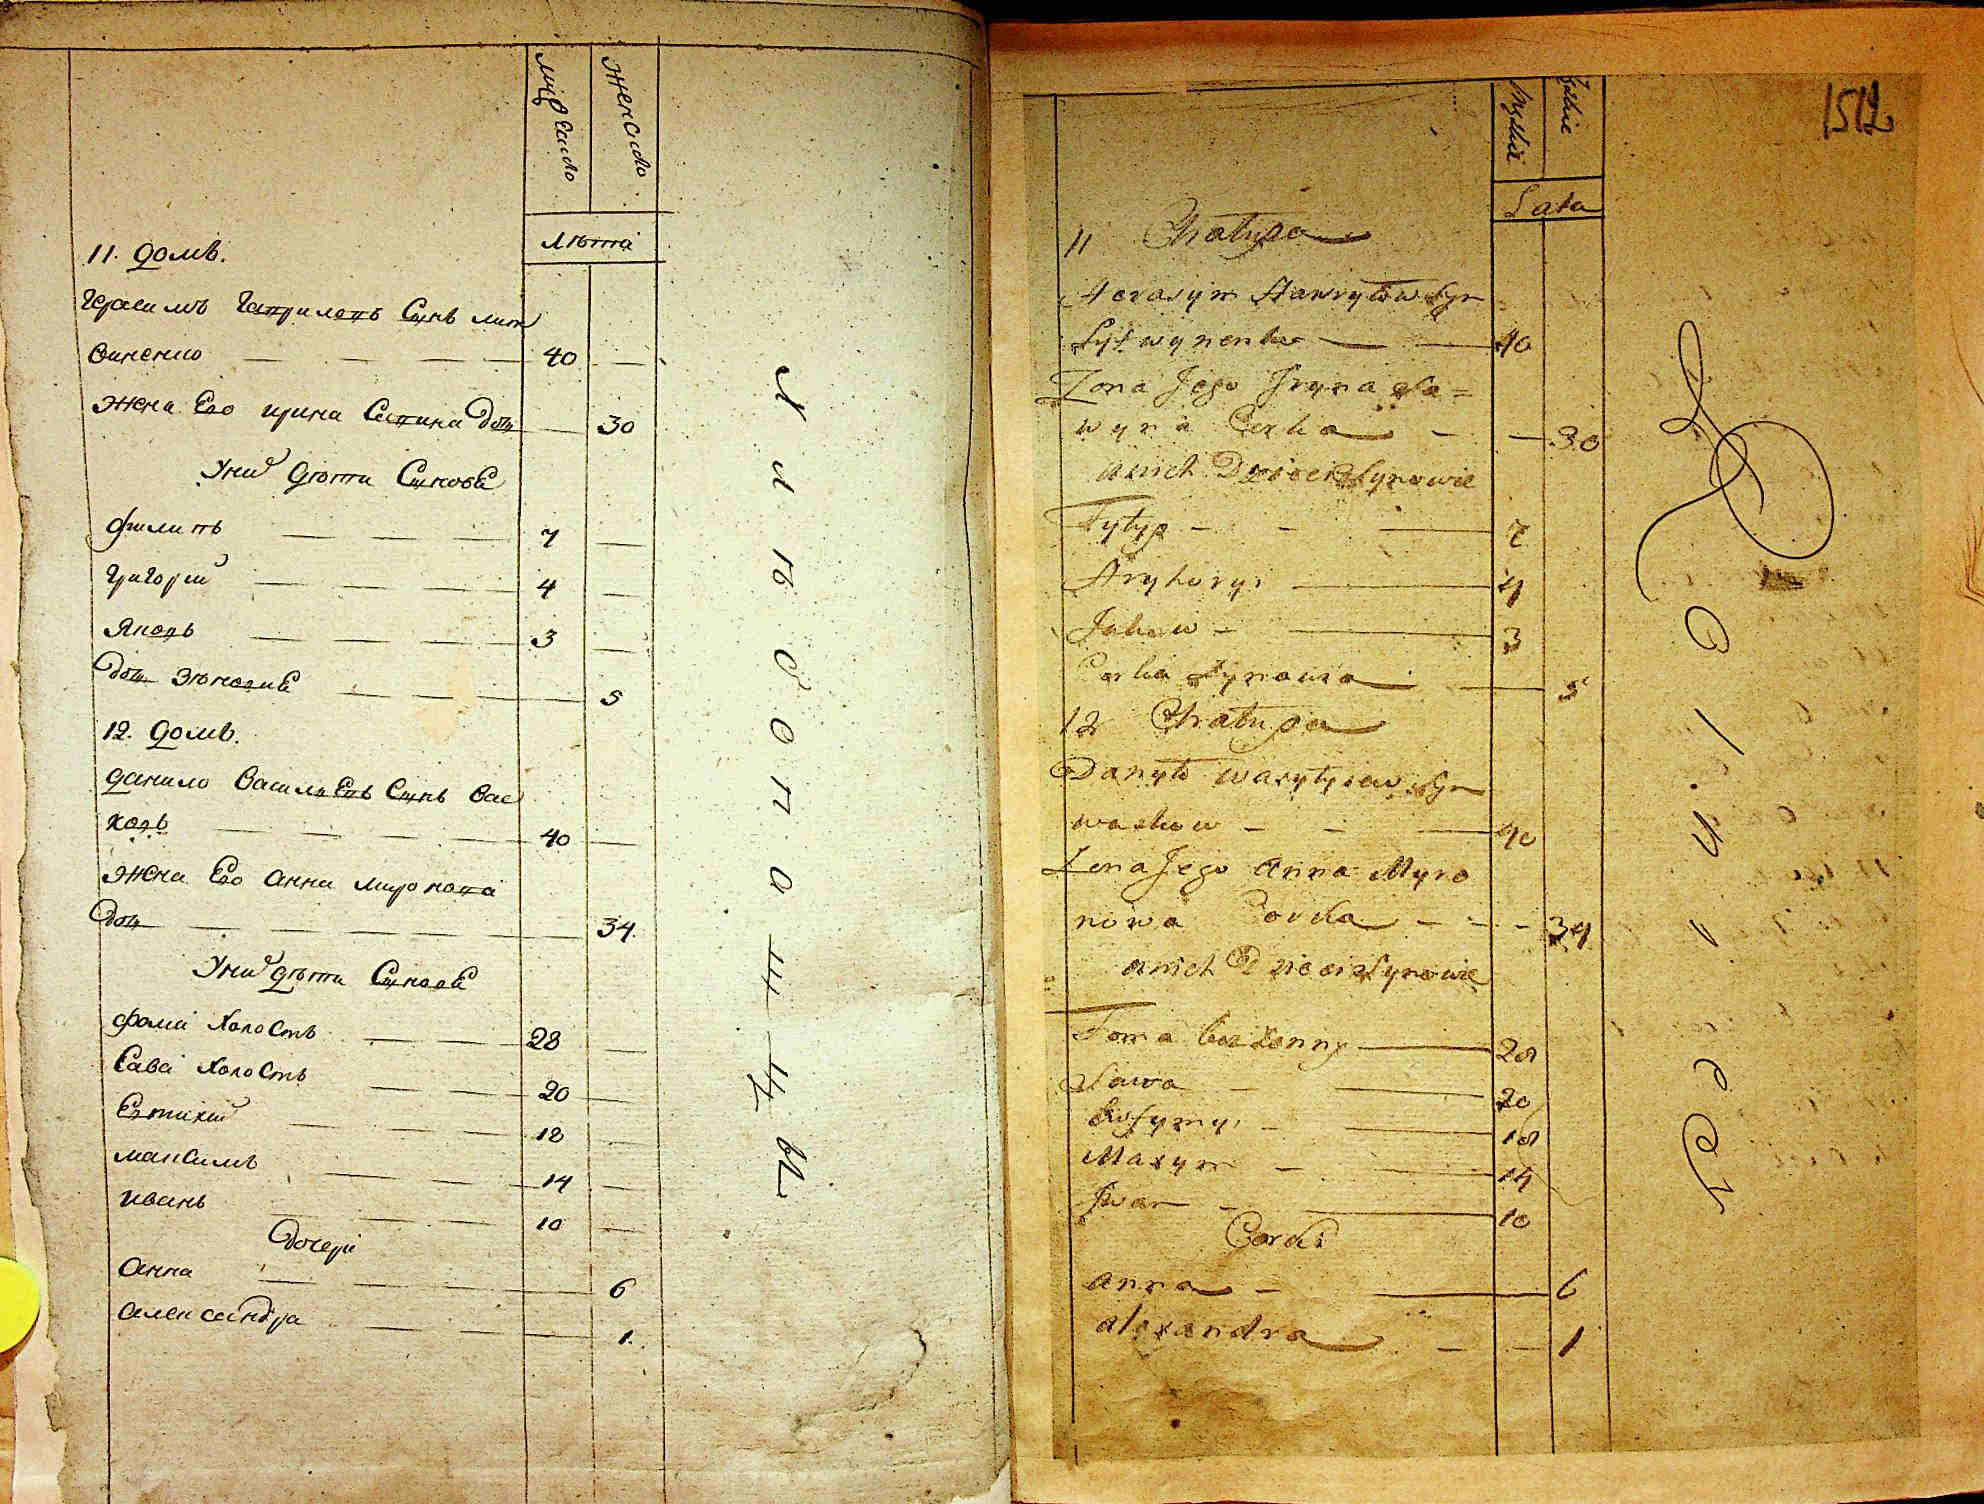 мужеско
женско
лѣта
11. домъ.
Герасимъ Гаврилевъ Сынъ лит
виненко 40
жена Его ирина Савина дочь 30
Уних дѣти Синове
филипъ 7
григорий 4
Яковъ 3
дочь Зѣновия 5
12. домъ.
данило Василиевъ Сынъ Вас
ковъ 40
жена Его анна миронова
дочь 34.
Уних дѣти Синове
фома холостъ 28
Сава холостъ 20
Евтихий 18
максимъ 14
иванъ 10
дочери
анна 6
александра 1.
Хлѣбопашци
1512
Męskie
Żeńskie
Lata
11 Chałupa
Herasym Hawryłow Syn
Łytwynenko 40
Żona Jego Iryna Sa=
wyna Corka 30
u nich Dzieci Synowie
Fyłyp 7
Hryhoryi 4
Jakow 3
Corka Zynowia 5
12 Chałupa
Danyło Wasylyiew Syn
Waskow 40
Żona Jego Anna Myro
nowa Corka 34
u nich Dzieci Synowie
Foma bezżenny 28
Sawa 20
Ewfymyi 18
Maxym 14
Iwan 10
Corki
anna 6
alexandra 1
Rolnicy